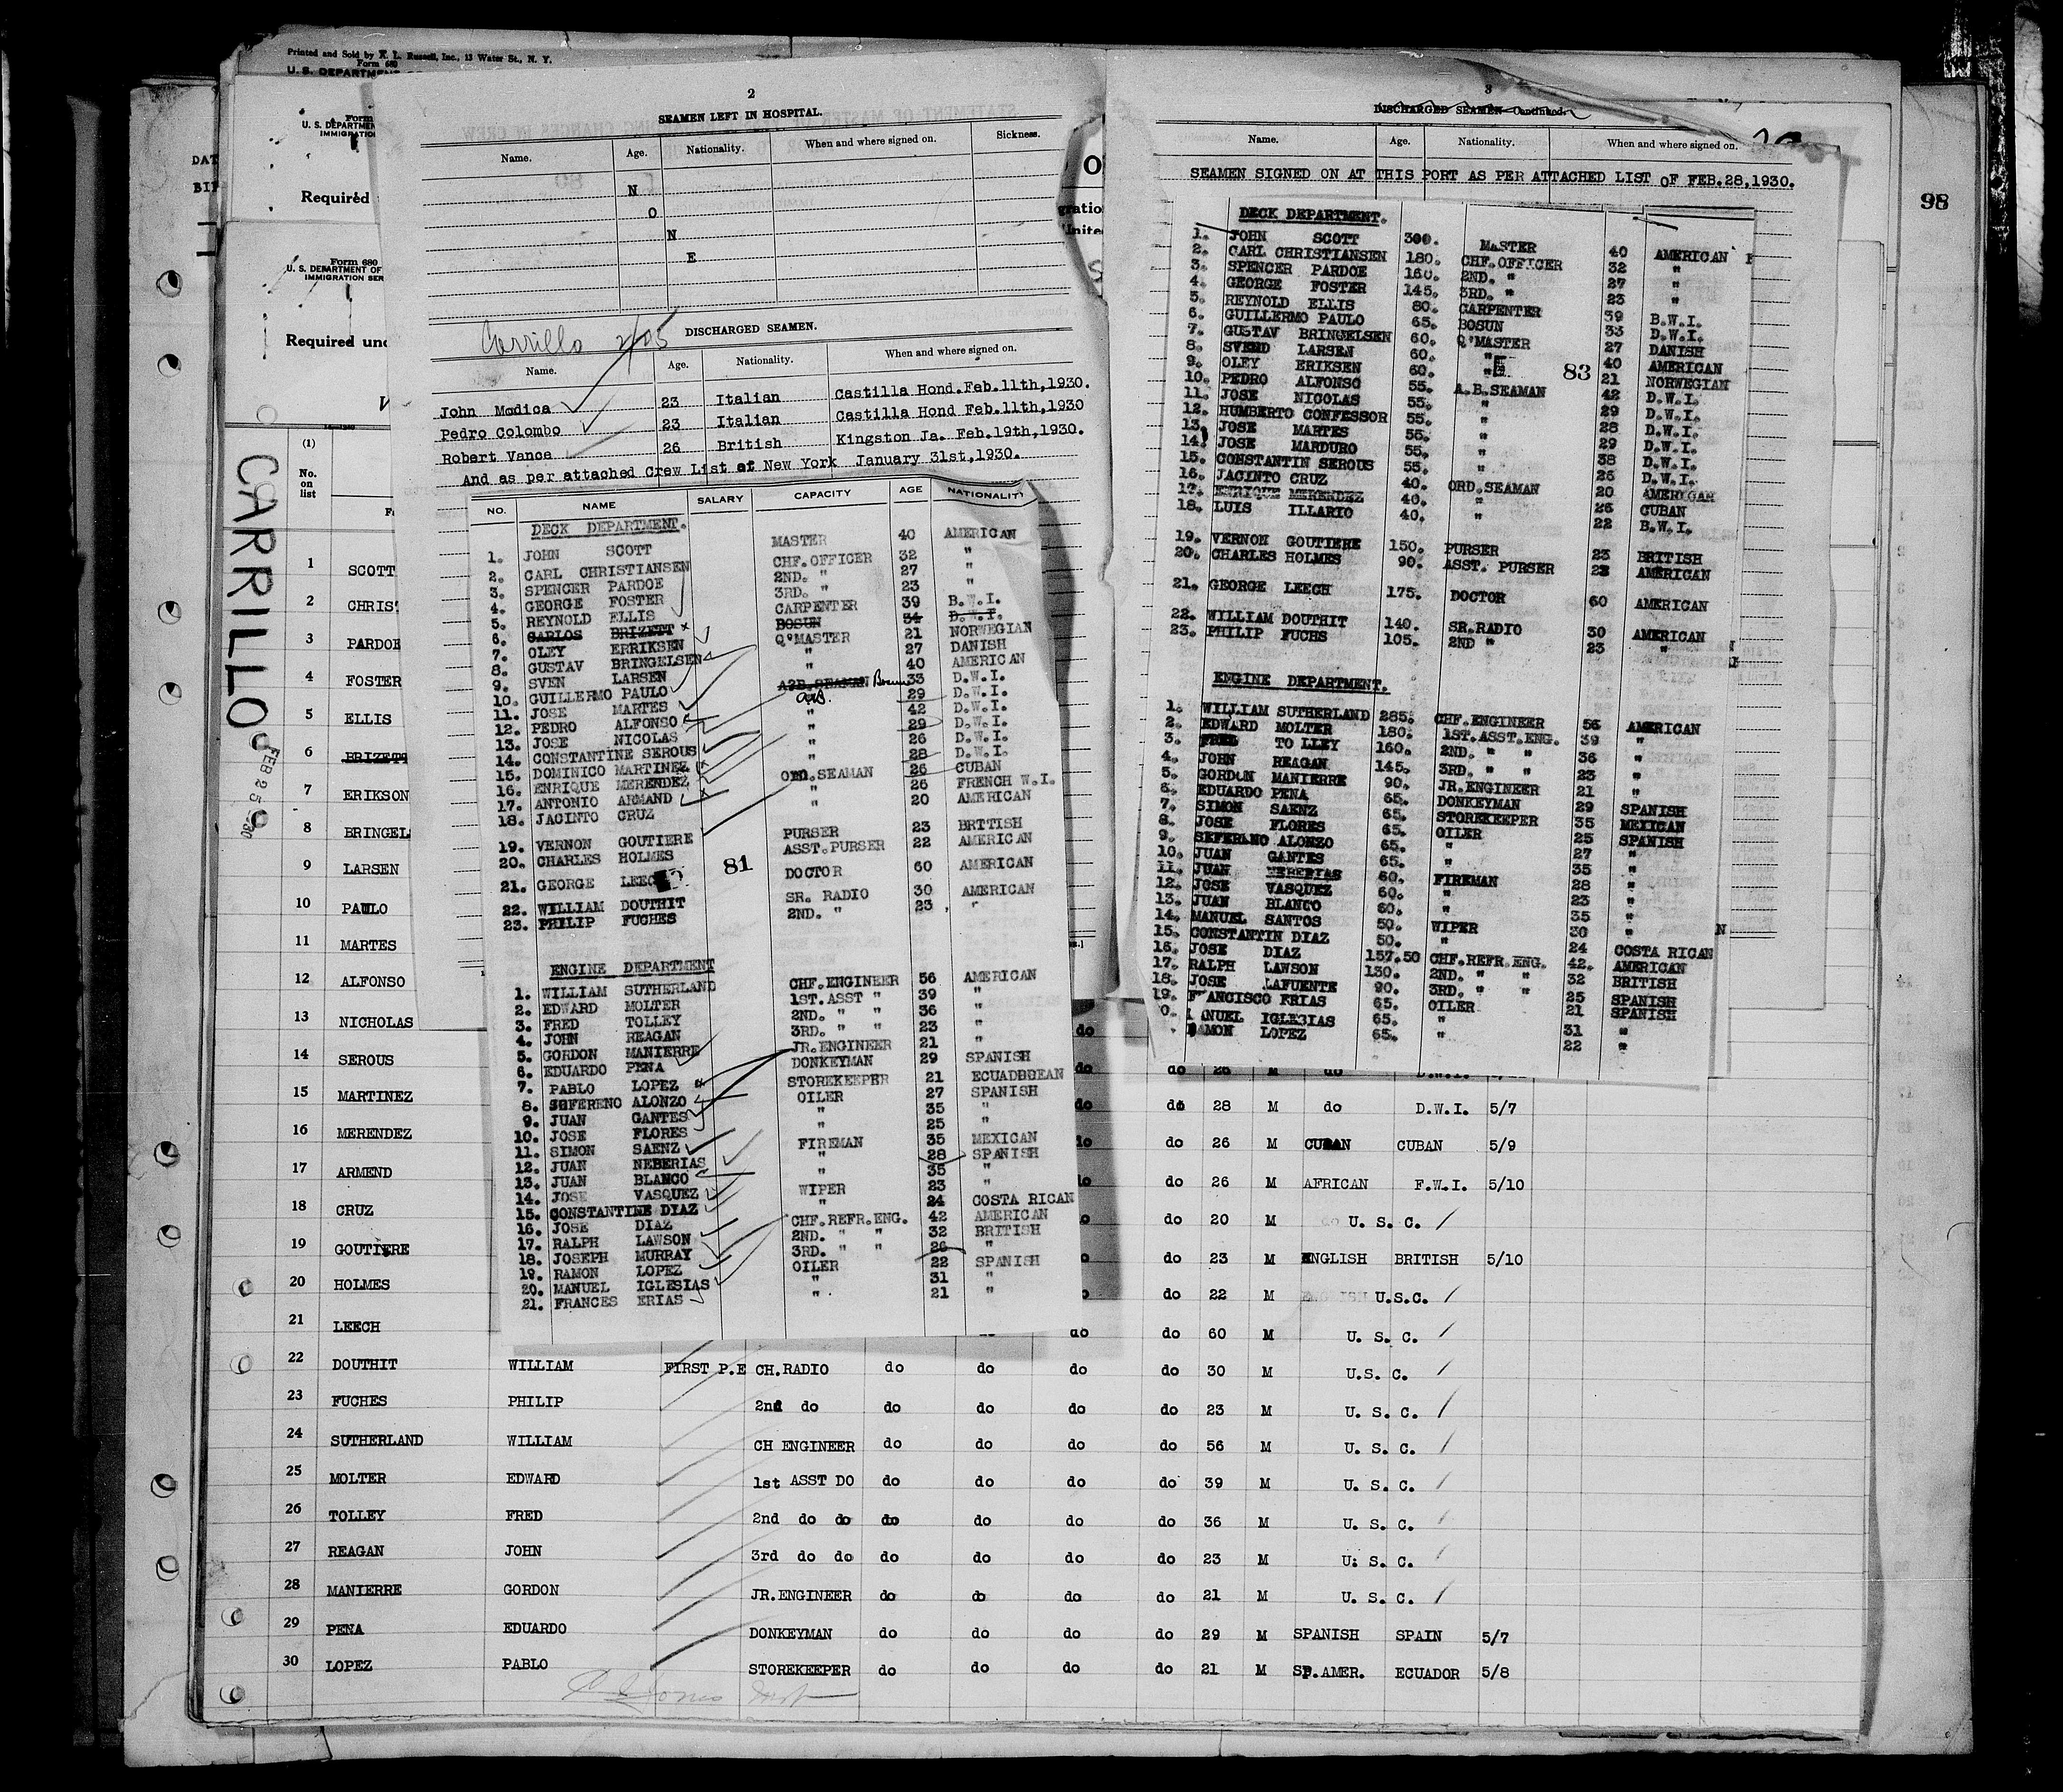 Printed and Sold by R. L. Russell, Inc., 13 Water St., N. Y.
Form 680
Form
U. S. DEPARTMEN
IMMIGRATIO
Required
Form 680
U. S. DEPARTMENT OF
IMMIGRATION SER
Required und
DAT
98
2
SEAMEN LEFT IN HOSPITAL.
Name. Age. Nationality. When and where signed on. Sickness.
N
O
N
E
Carrillo
DISCHARGED SEAMEN.
Name. Age. Nationality. When and where signed on.
John Modica 23 Italian Castilla Hond.Feb.11th,1930.
Pedro Colombo 23 Italian Castilla Hond Feb.11th,1930
Robert Vance 26 British Kingston Ja. Feb.19th,1930.
And as per attached Crew List at New York January 31st,1930.
NO. NAME SALARY CAPACITY AGE NATIONALITY
DECK DEPARTMENT.
1. JOHN SCOTT MASTER 40 AMERICAN
2. CARL CHRISTIANSEN CHF.OFFICER 32 "
3. SPENCER PARDOE 2ND. " 27 "
4. GEORGE FOSTER 3RD. " 23 "
5. REYNOLD ELLIS CARPENTER 39 B.W.I.
6. CARLOS BRIZETT BOSUN 34 D.W.I.
7. OLEY ERRIKSEN Q'MASTER 21 NORWEGIAN
8. GUSTAV BRINGELSEN " 27 DANISH
9. SVEN LARSEN " 40 AMERICAN
10. GUILLERMO PAULO A.B.SEAMAN Bosun 33 D.W.I.
11. JOSE MARTES A.B. 29 D.W.I.
12. PEDRO ALFONSO " 42 D.W.I.
13. JOSE NICOLAS " 29 D.W.I.
14. CONSTANTINE SEROUS " 26 D.W.I.
15. DOMINICO MARTINEZ " 28 D.W.I.
16. ENRIQUE MERENDEZ ORD.SEAMAN 26 CUBAN
17. ANTONIO ARMAND " 26 FRENCH W.I.
18. JACINTO CRUZ " 20 AMERICAN
19. VERNON GOUTIERE PURSER 23 BRTTISH
20. CHARLES HOLMES ASST.PURSER 22 AMERICAN
81
21. GEORGE LEECH DOCTOR 60 AMERICAN
22. WILLIAM DOUTHIT SR. RADIO 30 AMERICAN
23. PHILIP FUCHES 2ND. " 23 "
ENGINE DEPARTMENT
1. WILLIAM SUTHERLAND CHF.ENGINEER 56 AMERICAN
2. EDWARD MOLTER 1ST.ASST " 39 "
3. FRED TOLLEY 2ND. " " 36 "
4. JOHN REAGAN 3RD. " " 23 "
5. GORDON MANIERRE JR.ENGINEER 21 "
6. EDUARDO PENA DONKEYMAN 29 SPANISH
7. PABLO LOPEZ STOREKEEPER 21 ECUADOREAN
8. SEFERENO ALONZO OILER 27 SPANISH
9. JUAN GANTES " 35 "
10. JOSE FLORES " 25 "
11. SIMON SAENZ FIREMAN 35 MEXICAN
12. JUAN NEBERIAS " 28 SPANISH
13. JUAN BLANCO " 35 "
14. JOSE VASQUEZ WIPER 23 "
15. CONSTANTINE DIAZ " 24 COSTA RICAN
16. JOSE DIAZ CHF.REFR.ENG. 42 AMERICAN
17. RALPH LAWSON 2ND. " " 32 BRITISH
18. JOSEPH MURRAY 3RD. " " 26 "
19. RAMON LOPEZ OILER 22 SPANISH
20. MANUEL IGLESIAS " 31 "
21. FRANCES ERIAS " 21 "
3
DISCHARGED SEAMEN—Continued.
Name. Age. Nationality. When and where signed on.
SEAMEN SIGNED ON AT THIS PORT AS PER ATTACHED LIST OF FEB.28,1930.
DECK DEPARTMENT.
1. JOHN SCOTT 300. MASTER 40 AMERICAN
2. CARL CHRISTIANSEN 180. CHF.OFFICER 32 "
3. SPENCER PARDOE 160. 2ND. " 27 "
4. GEORGE FOSTER 145. 3RD. " 23 "
5. REYNOLD ELLIS 80. CARPENTER 39 B.W.I.
6. GUILLERMO PAULO 65. BOSUN 33 D.W.I.
7. GUSTAV BRINGELSEN 60. Q'MASTER 27 DANISH
8. SVEND LARSEN 60. " 40 AMERICAN
9. OLEY ERIKSEN 60. " 21 NORWEGIAN
83
10. PEDRO ALFONSO 55. A.B.SEAMAN 42 D.W.I.
11. JOSE NICOLAS 55. " 29 D.W.I.
12. HUMBERTO CONFESSOR 55. " 28 D.W.I.
13. JOSE MARTES 55. " 29 D.W.I.
14. JOSE MARDURO 55. " 38 D.W.I.
15. CONSTANTIN SEROUS 55. " 26 D.W.I.
16. JACINTO CRUZ 40. ORD.SEAMAN 20 AMERICAN
17. ENRIQUE MERENDEZ 40. " 26 CUBAN
18. LUIS ILLARIO 40. " 22 B.W.I.
19. VERNON GOUTIERE 150. PURSER 23 BRITISH
20. CHARLES HOLMES 90. ASST. PURSER 23 AMERICAN
21. GEORGE LEECH 175. DOCTOR 60 AMERICAN
22. WILLIAM DOUTHIT 140. SR.RADIO 30 AMERICAN
23. PHILIP FUCHS 105. 2ND " 23 "
ENGINE DEPARTMENT.
1. WILLIAM SUTHERLAND 285. CHF.ENGINEER 56 AMERICAN
2. EDWARD MOLTER 180. 1ST.ASST.ENG. 39 "
3. FRED TO LLEY 160. 2ND. " " 36 "
4. JOHN REAGAN 145. 3RD. " " 23 "
5. GORDON MANIERRE 90. JR.ENGINEER 21 "
6. EDUARDO PENA 65. DONKEYMAN 29 SPANISH
7. SIMON SAENZ 65. STOREKEEPER 35 MEXICAN
8. JOSE FLORES 65. OILER 25 SPANISH
9. SEFERANO ALONZO 65. " 27 "
10. JUAN GANTES 65. " 35 "
11. JUAN NEBERIAS 60. FIREMAN 28 "
12. JOSE VASQUEZ 60. " 23 "
13. JUAN BLANCO 60. " 35 "
14. MANUEL SANTOS 50. WIPER 30 "
15. CONSTANTIN DIAZ 50. " 24 COSTA RICAN
16. JOSE DIAZ 157.50 CHF.REFR.ENG. 42. AMERICAN
17. RALPH LAWSON 130. 2ND. " " 32 BRITISH
18. JOSE LAFUENTE 90. 3RD. " " 25 SPANISH
19. FRANCISCO FRIAS 65. OILER 21 SPANISH
0. ANUEL IGLESIAS 65. " 31 "
AMON LOPEZ 65. " 22 "
CARRILLO
FEB 25 1930
(1)
No.
on
list
1 SCOTT
2 CHRIST
3 PARDOE
4 FOSTER
5 ELLIS
6 BRIZETT
7 ERIKSON
8 BRINGEL
9 LARSEN
10 PAULO
11 MARTES
12 ALFONSO
13 NICHOLAS do
14 SEROUS do do 26 M do D.W.I.
15 MARTINEZ do do 28 M do D.W.I. 5/7
16 MERENDEZ do do 26 M CUBAN CUBAN 5/9
17 ARMEND do 26 M AFRICAN F.W.I. 5/10
18 CRUZ do 20 M U. S. C.
19 GOUTIERE do 23 M ENGLISH BRITISH 5/10
20 HOLMES do 22 M U.S.C.
21 LEECH do do 60 M U. S. C.
22 DOUTHIT WILLIAM FIRST P.E CH.RADIO do do do do 30 M U.S. C.
23 FUCHES PHILIP 2nd do do do do do 23 M U. S. C.
24 SUTHERLAND WILLIAM CH ENGINEER do do do do 56 M U. S. C.
25 MOLTER EDWARD 1st ASST DO do do do do 39 M U. S. C.
26 TOLLEY FRED 2nd do do do do do do 36 M U. S. C.
27 REAGAN JOHN 3rd do do do do do do 23 M U. S. C.
28 MANIERRE GORDON JR.ENGINEER do do do do 21 M U. S. C.
29 PENA EDUARDO DONKEYMAN do do do do 29 M SPANISH SPAIN 5/7
30 LOPEZ PABLO STOREKEEPER do do do do 21 M SP.AMER. ECUADOR 5/8